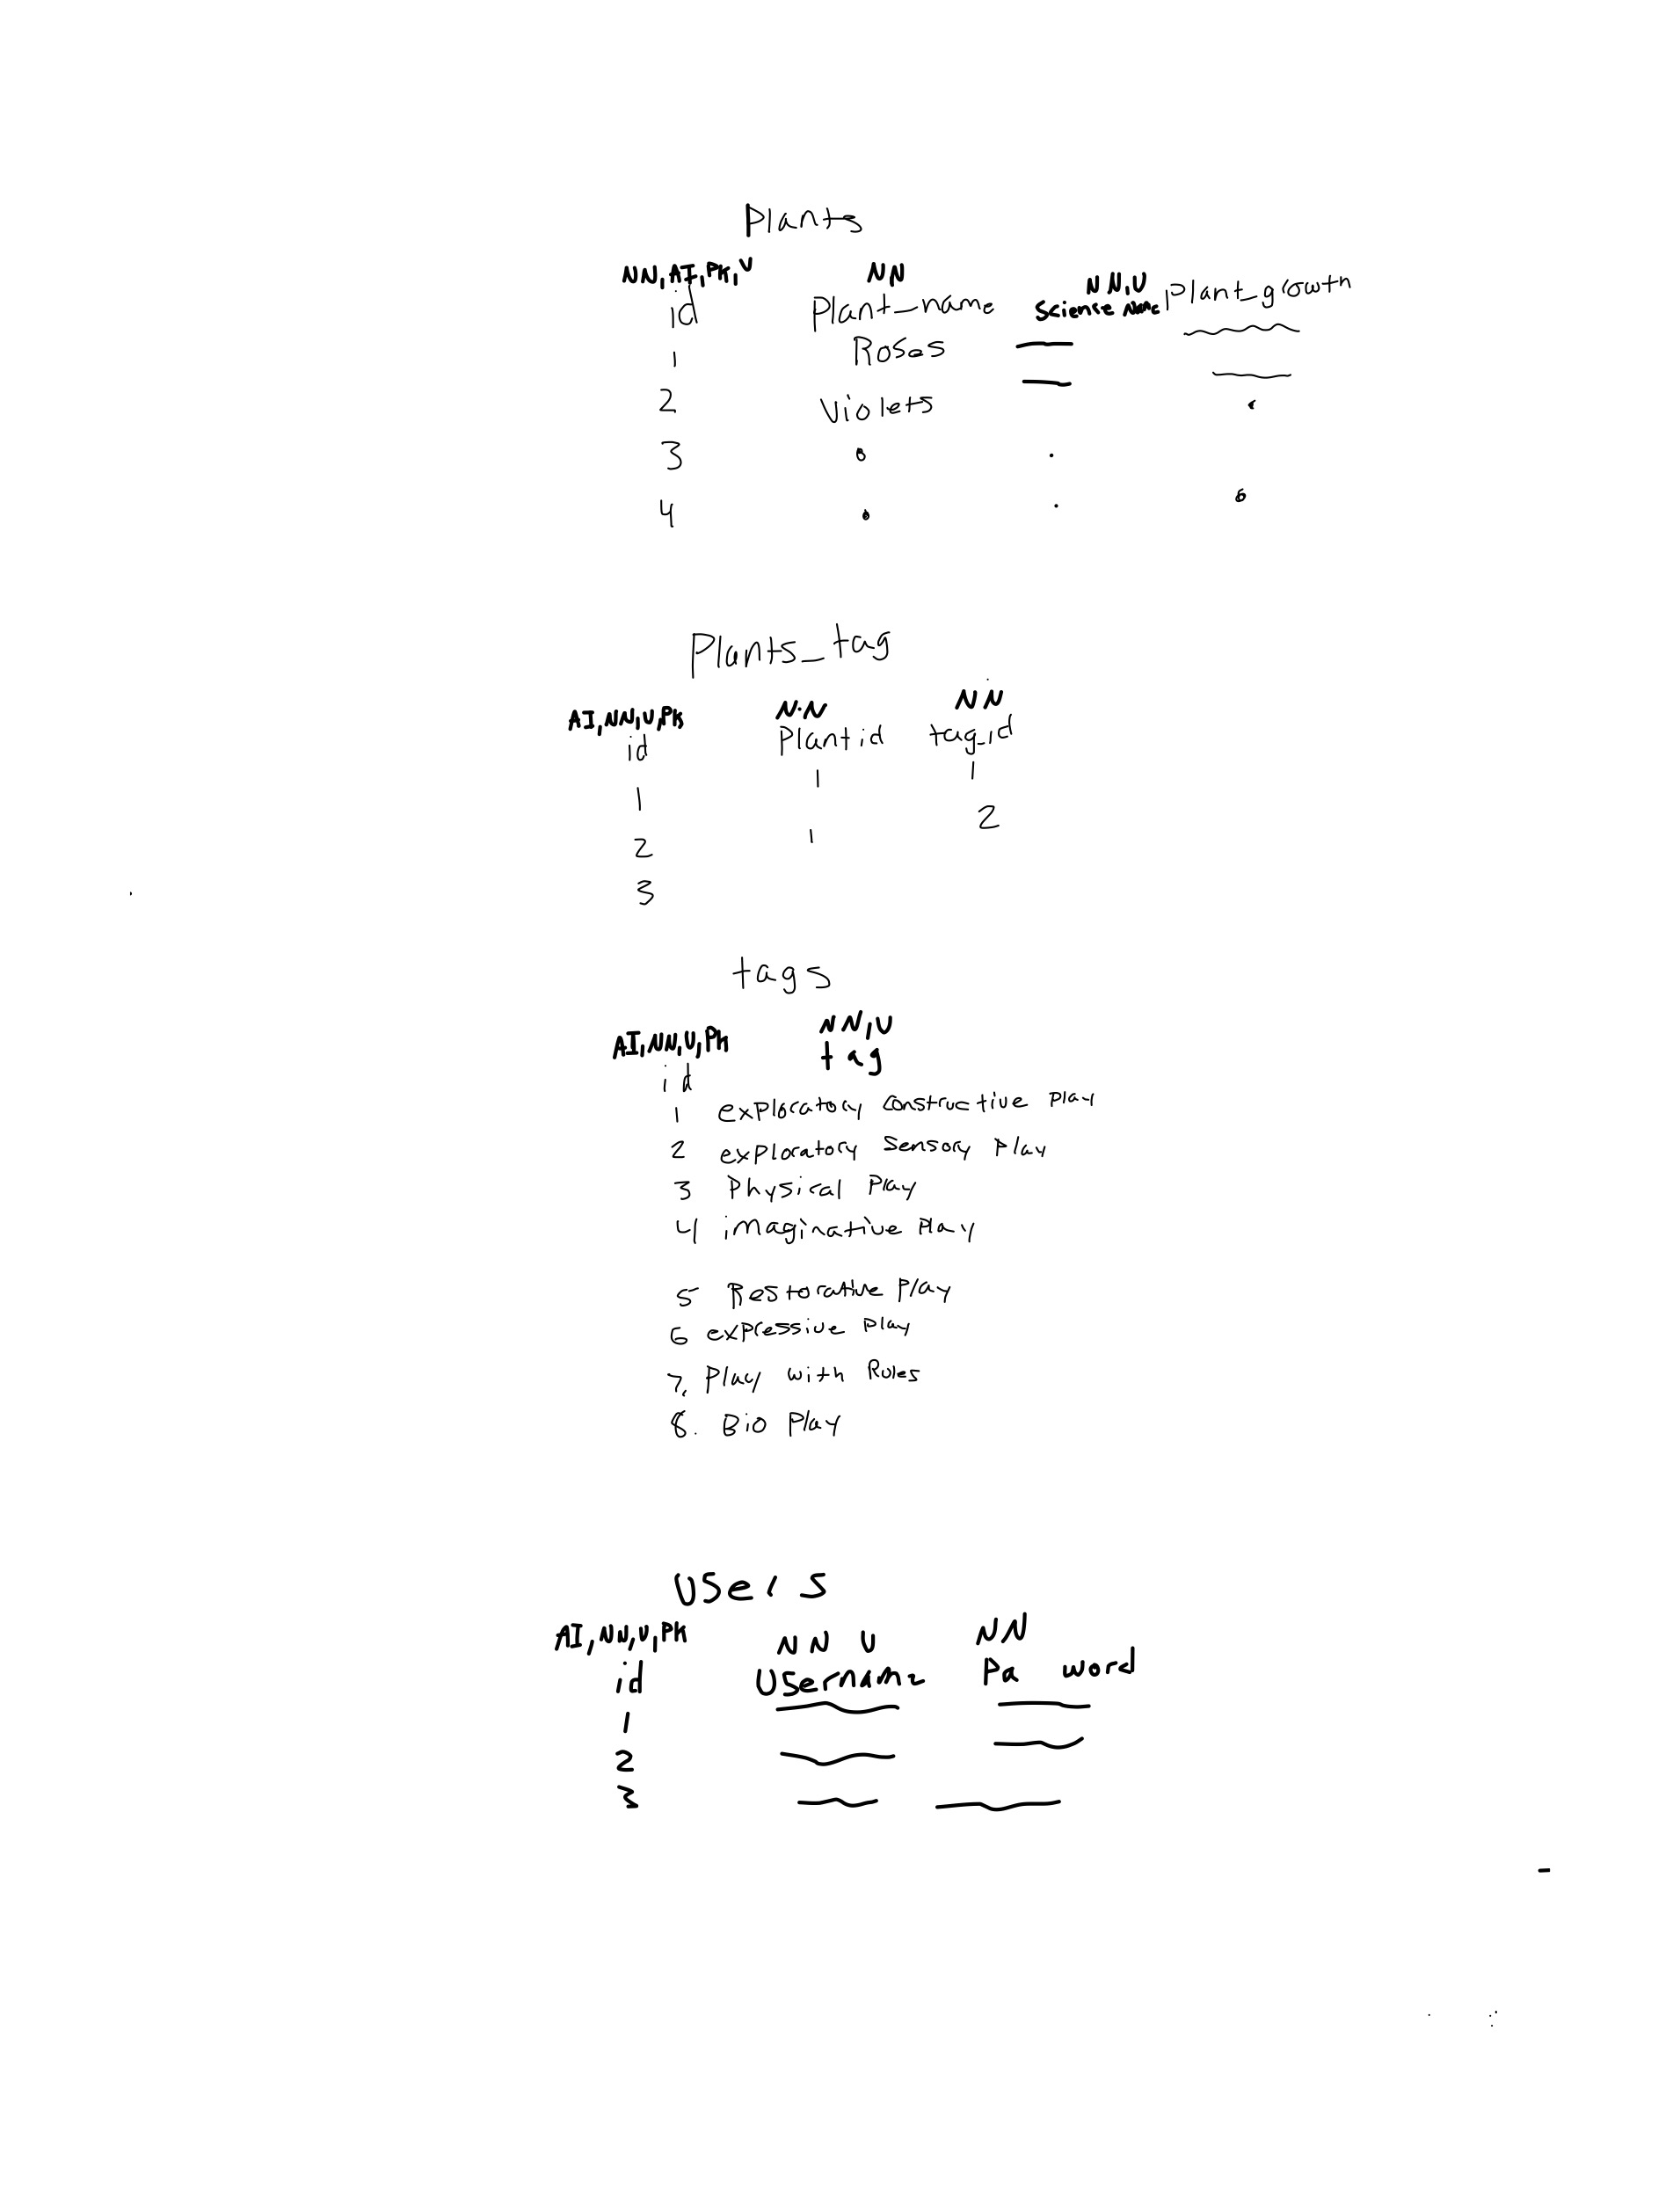 Plants
NN, AI, PK, U NN NN, U
id Plant_name Science Name Plant_growth
1 Roses
2 Violets
3
4
Plants_tag
AI, NN, U, PK N.N NN
id Plantid tag_id
1 1 1
2 1 2
3
tags
AI, NN, U, PK NN, U
id tag
1 exploratory constructive play
2 exploratory Sensory Play
3 Physical Play
4 imaginative Play
5 Restorative Play
6 expressive play
7. Play with Rules
8. Bio Play
Users
AI, NN, U, PK NN U NN
id Username Pa word
1
2
3